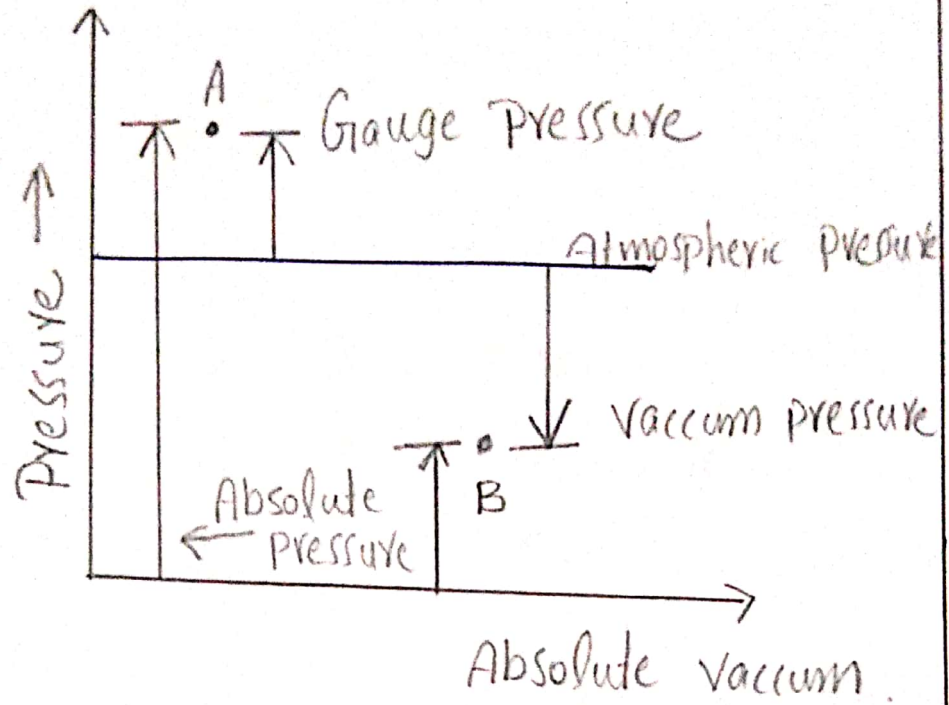 A
Gauge Pressure
Atmospheric pressure
Pressure →
Vaccum pressure
B
Absolute
← pressure
Absolute vaccum.